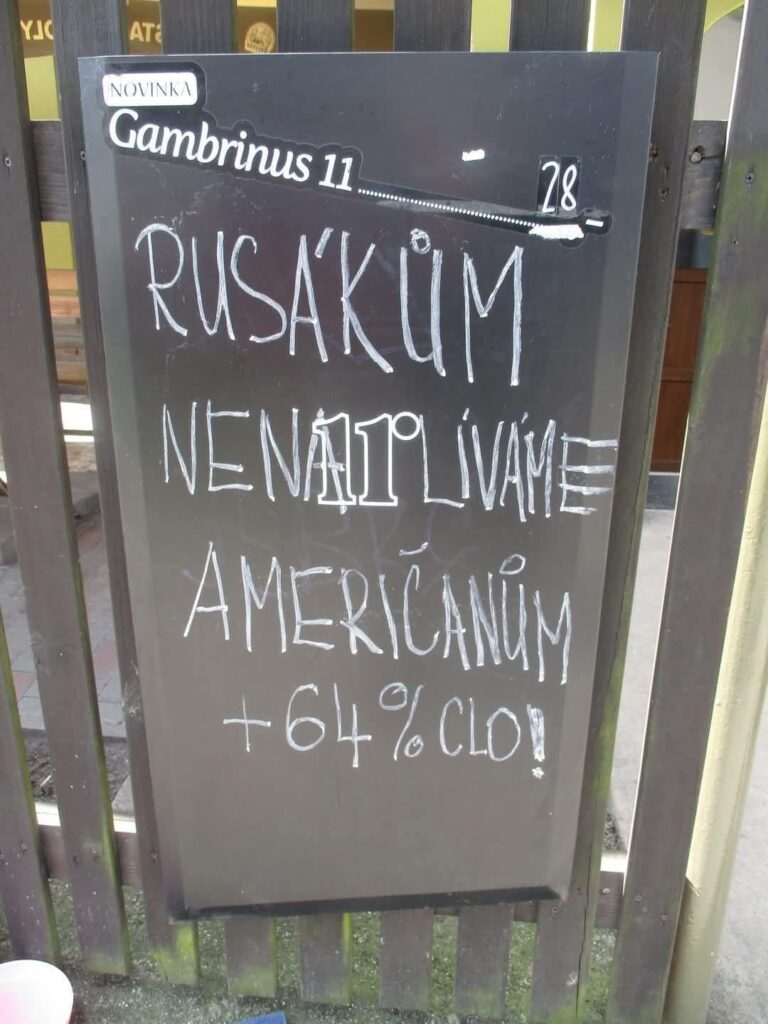 NOVINKA
Gambrinus 11
28
RUSÁKŮM
NENALÍVÁME
11°
AMERIČANŮM
+64% CLO!